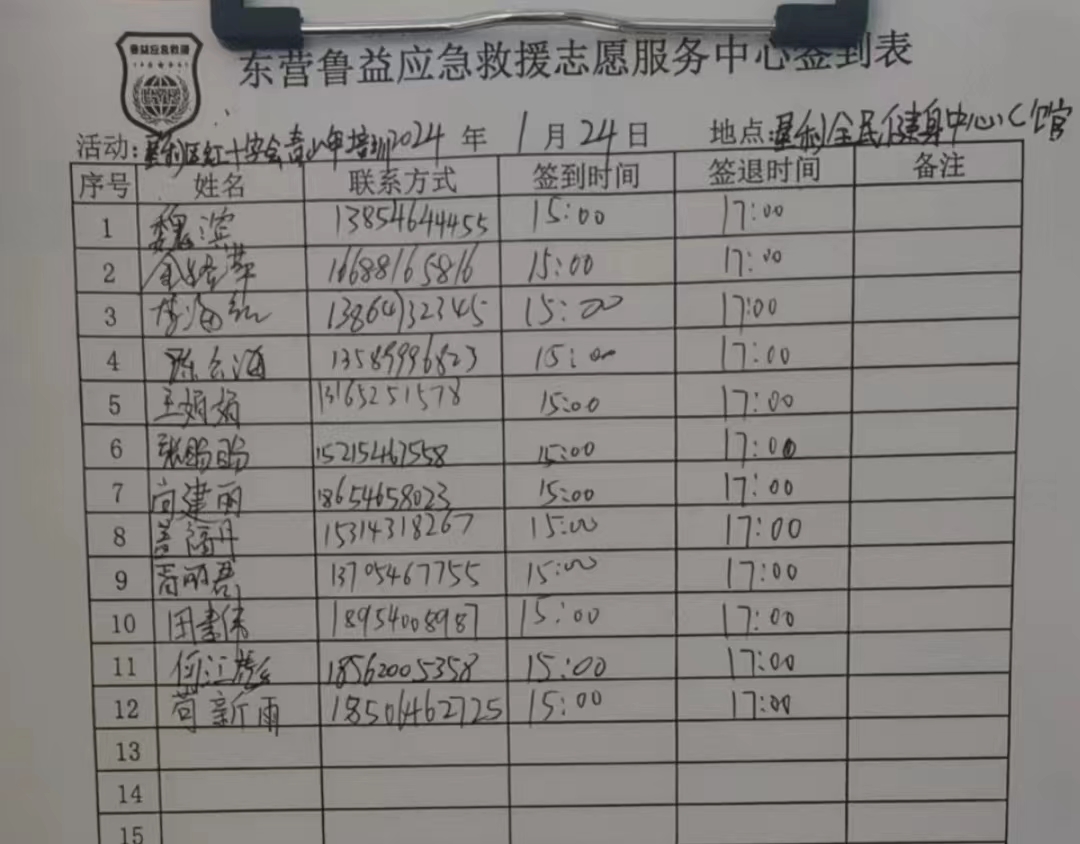 鲁益应急救援
东营鲁益应急救援志愿服务中心签到表
活动:垦利区红十字会 培训 2024 年 1 月 24 日 地点:垦利全民健身中心C馆
序号 姓名 联系方式 签到时间 签退时间 备注
1 魏滨 13854644455 15:00 17:00
2 16688165816 15:00 17:00
3 李海红 13864732345 15:00 17:00
4 陈云海 13589996823 15:00 17:00
5 王娟娟 13165251578 15:00 17:00
6 张盼盼 15215467558 15:00 17:00
7 向建丽 18654658023 15:00 17:00
8 15314318267 15:00 17:00
9 13705467755 15:00 17:00
10 田素伟 18954008987 15:00 17:00
11 18562005358 15:00 17:00
12 苟新雨 18501462725 15:00 17:00
13
14
15